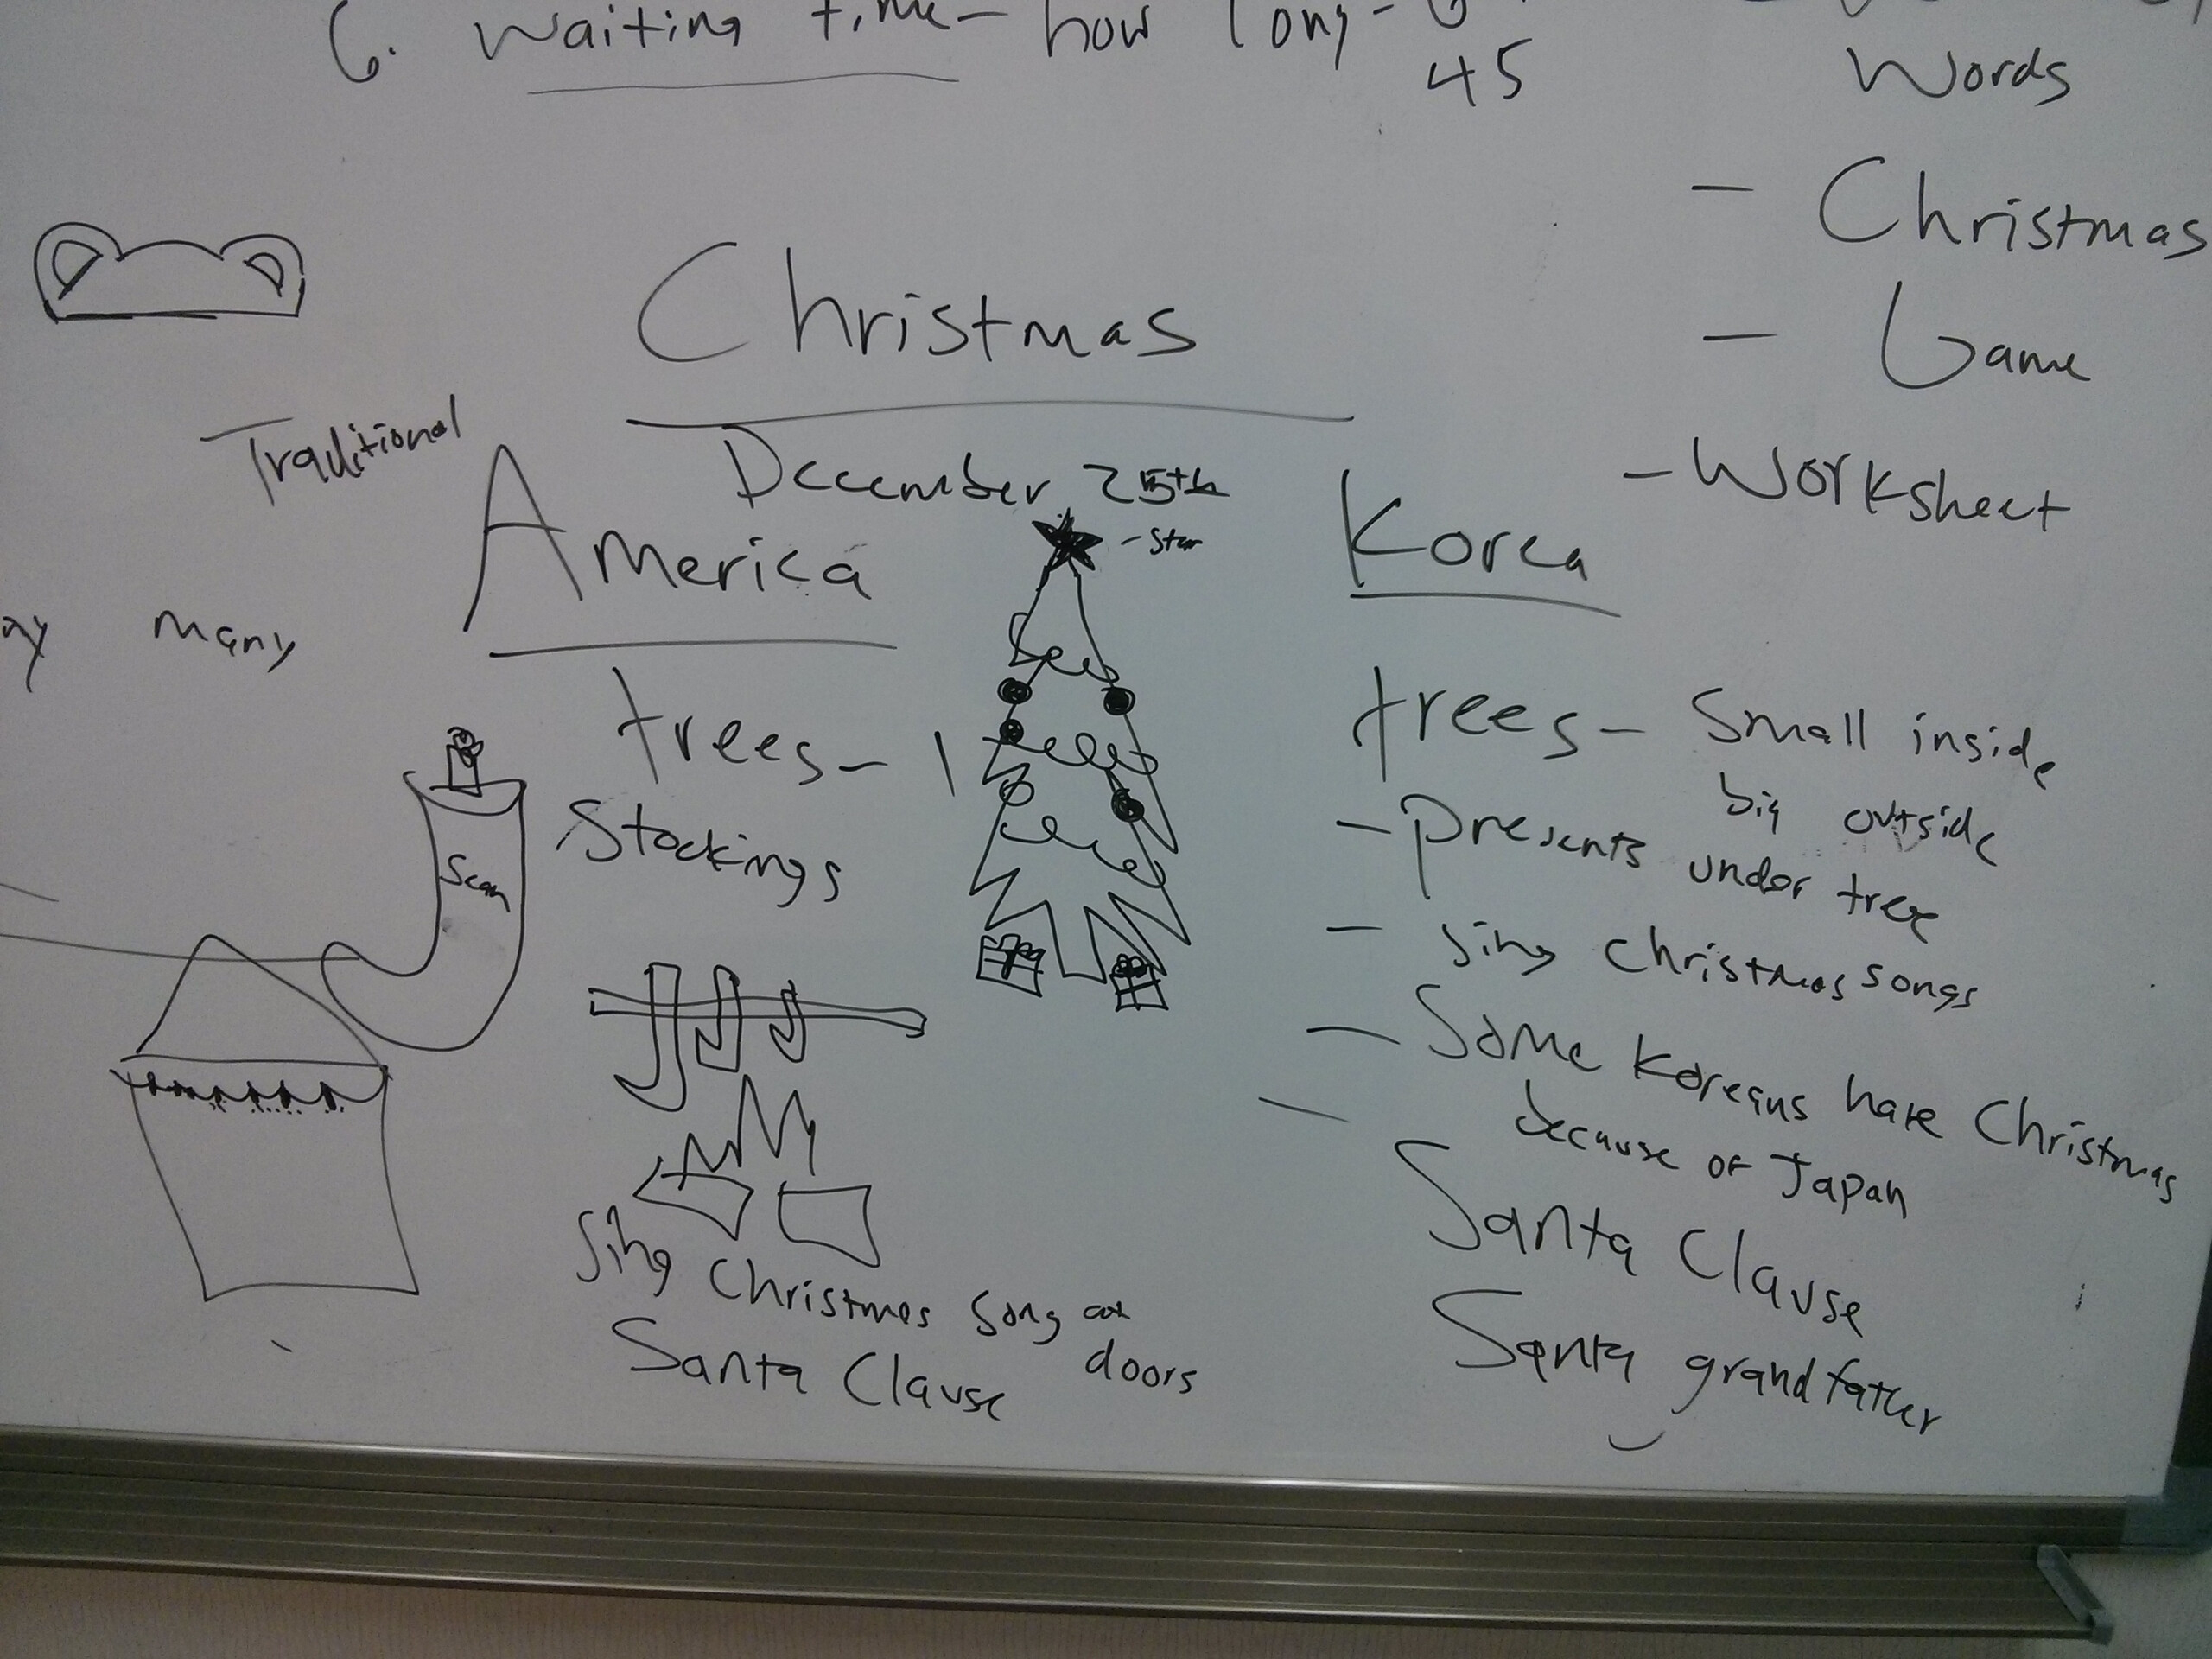 6. Waiting time - how long -
45
Words
- Christmas
- Game
- Worksheet
Christmas
December 25th
Traditional
America
trees - 1
Stockings
Sing Christmas Song at
doors
Santa Clause
- Star
many
Sean
Korea
trees - Small inside
big outside
- Presents under tree
- Sing Christmas songs
- Some Koreans have Christmas
because of Japan
- Santa Clause
Santa grandfather